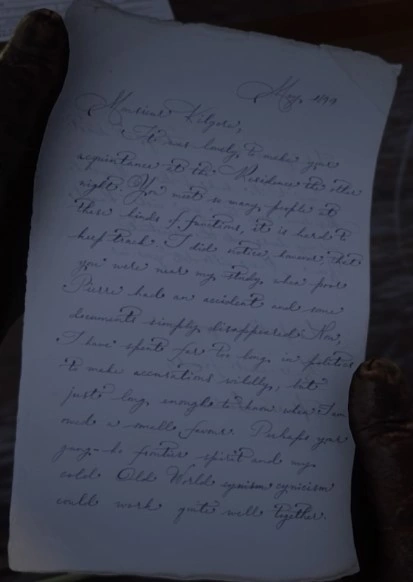 May, 1899
Monsieur Kilgore,
It was lovely to make your
acquaintance at the Residence the other
night. You meet so many people at
these kinds of functions, it is hard to
keep track. I did notice however that
you were near my study, when poor
Pierre had an accident and some
documents simply disappeared. Now,
I have spent far too long in politics
to make accusations wildly, but
just long enough to know when I am
owed a small favour. Perhaps your
gung-ho frontier spirit and my
cold Old World cynicism
could work quite well together.